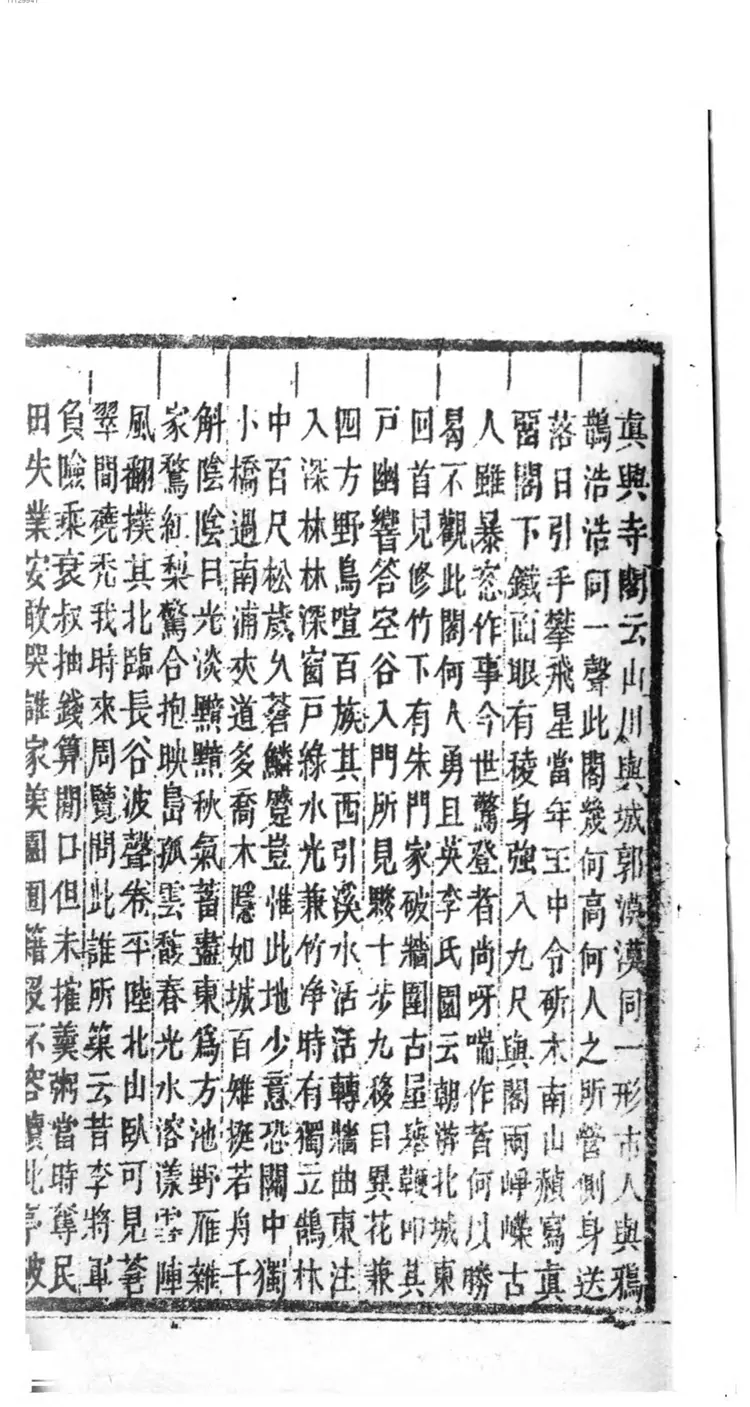 真興寺閣云山川與城郭漠漠同一形市人與鴉
鵲浩浩同一聲此閣幾何高何人之所營側身送
落日引手攀飛星當年王中令斫木南山赬寫真
留閣下鐵面眼有稜身強入九尺與閣兩崢嶸古
人雖暴恣作事今世驚登者尚呀喘作者何以勝
曷不觀此閣何人勇且英李氏園云朝游北城東
回首見修竹下有朱門家破牆圍古屋舉鞭叩其
戸幽響答空谷入門所見夥十步九移目異花兼
四方野鳥喧百族其西引溪水活活轉牆曲東注
入深林林深窗戸綠水光兼竹净時有獨立鵠林
中百尺松歲久蒼鱗蹙豈惟此地少意恐關中獨
小橋過南浦夾道多喬木隱如城百雉挺若舟千
斛陰陰日光淡黯黯秋氣蓄盡東爲方池野雁雜
家鶩紅梨驚合抱映島孤雲馥春光水溶漾雪陣
風翻撲其北臨長谷波聲卷平陸北山臥可見蒼
翠間磽禿我時來周覽問此誰所築云昔李將軍
負險乘衰叔抽錢算閒口但未搉羹粥當時奪民
田失業安敢哭誰家美園圃籍沒不容贖此亭破